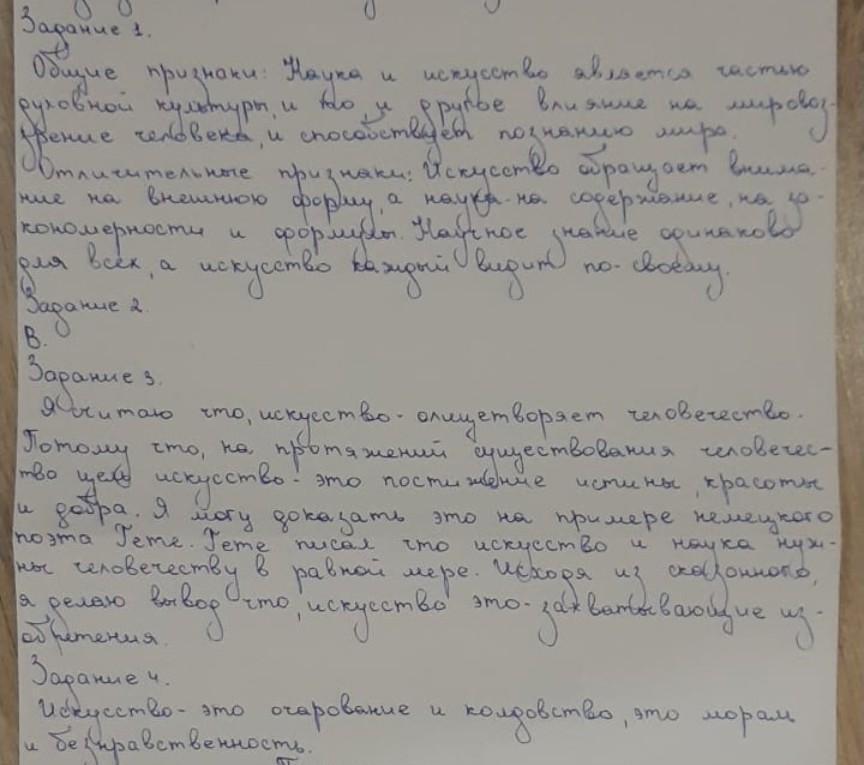 Задание 1.
Общие признаки: Наука и искусство является частью
духовной культуры, и то и другое влияние на мировоз-
зрение человека, и способствует познанию мира.
Отличительные признаки: Искусство обращает внима-
ние на внешнюю форму, а наука-на содержание, на за-
кономерности и формулы. Научное знание одинаково
для всех, а искусство каждый видит по-своему.
Задание 2.
В.
Задание 3.
Я считаю что, искусство-олицетворяет человечество.
Потому что, на протяжений существования человечес-
тво цель искусство-это постижение истины, красоты
и добра. Я могу доказать это на примере немецкого
поэта Гете. Гете писал что искусство и наука нуж-
ны человечеству в равной мере. Исходя из сказонного,
я делаю вывод что, искусство это-захватывающие из-
обретения.
Задание 4.
Искусство-это очарование и колдовство, это морали
и безнравственность.